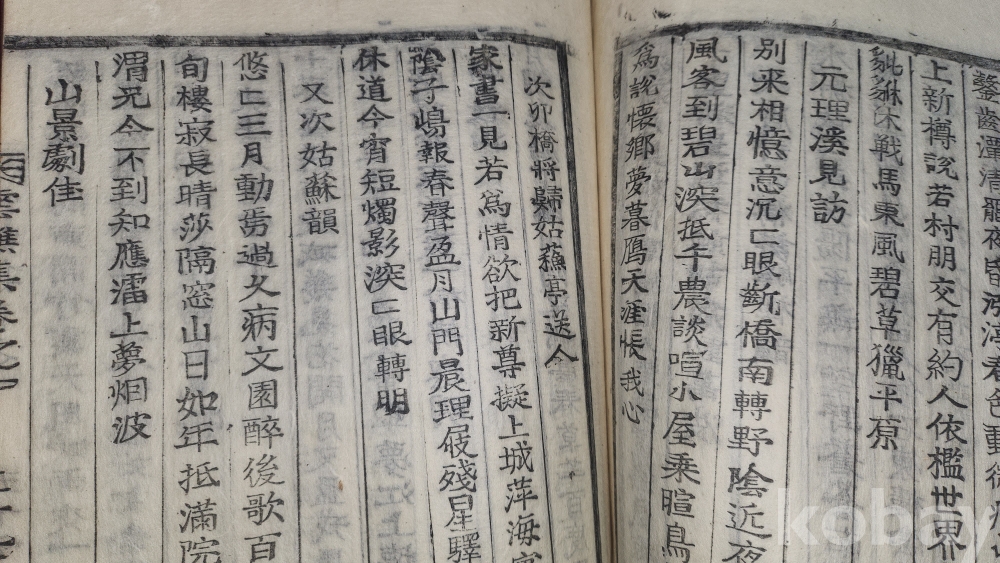 鑿齒潭清
上新樽說若村朋交有約人依檻世界
貔貅休戰馬東風碧草獵平原
元理溪見訪
別来相憶意沉〻眼斷橋南轉野陰近夜
風客到碧山深抵千農談喧小屋乘暄鳥
爲說懷鄉夢暮鴈天涯悵我心
次卯橋將歸姑蘇亭送今
家書一見若爲情欲把新尊擬上城萍海
陰子鳴報春聲盈月山門晨理屐殘星驛
休道今宵短燭影深〻眼轉明
又次姑蘇韻
悠〻三月動勞過久病文園醉後歌百
旬樓寂長晴莎隔窓山日如年抵滿院
渭兄今不到知應灞上夢烟波
山景劇佳
雲樵集卷之
kobay